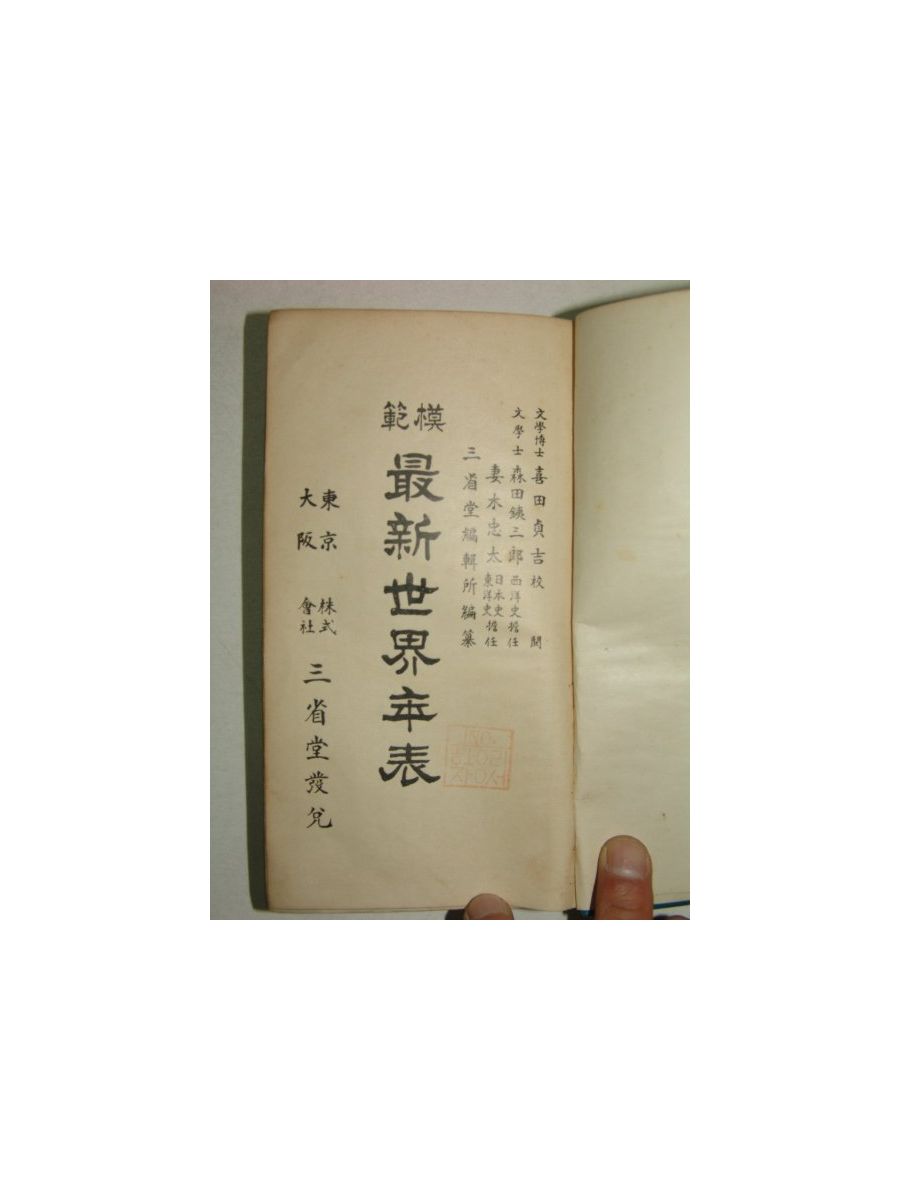 文學博士 喜田貞吉 校閲
文學士 森田鐵三郎 西洋史擔任
妻木忠太 日本史東洋史擔任
三省堂編輯所編纂
模範
最新世界年表
東京
大阪
株式會社
三省堂發兌